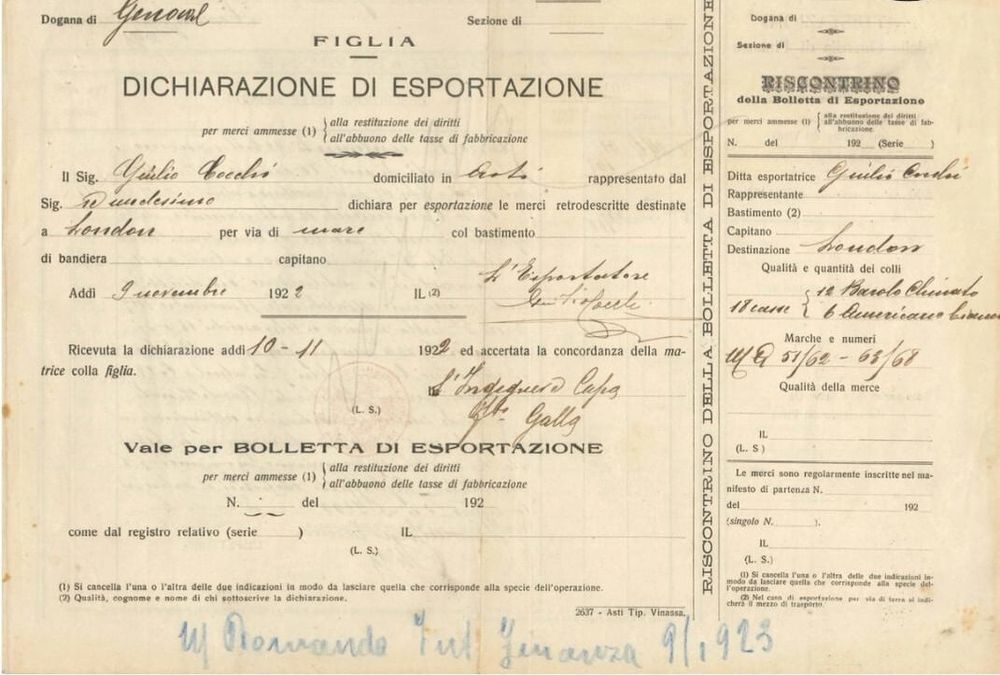 Dogana di Genova
Sezione di
FIGLIA
DICHIARAZIONE DI ESPORTAZIONE
per merci ammesse (1) { alla restituzione dei diritti
all'abbuono delle tasse di fabbricazione
Il Sig. Giulio Cocchi domiciliato in Asti rappresentato dal
Sig. medesimo dichiara per esportazione le merci retrodescritte destinate
a London per via di mare col bastimento
di bandiera capitano
L'Esportatore
Addì 9 novembre 1922 IL (2)
Ricevuta la dichiarazione addì 10-11 1922 ed accertata la concordanza della ma-
trice colla figlia.
IL L'Ingegnere Capo
(L. S.) Galla
Vale per BOLLETTA DI ESPORTAZIONE
per merci ammesse (1) { alla restituzione dei diritti
all'abbuono delle tasse di fabbricazione
N. del 192
come dal registro relativo (serie ) IL
(L. S.)
(1) Si cancella l'una o l'altra delle due indicazioni in modo da lasciare quella che corrisponde alla specie dell'operazione.
(2) Qualità, cognome e nome di chi sottoscrive la dichiarazione.
2637 - Asti Tip. Vinassa.
9/1923
RISCONTRINO DELLA BOLLETTA DI ESPORTAZIONE
Dogana di
Sezione di
RISCONTRINO
della Bolletta di Esportazione
per merci ammesse (1) { alla restituzione dei diritti
all'abbuono delle tasse di fab-
bricazione.
N. del 192 (Serie )
Ditta esportatrice Giulio Cocchi
Rappresentante
Bastimento (2)
Capitano
Destinazione London
Qualità e quantità dei colli
18 casse { 12 Barolo Chinato
6 Americano bianco
Marche e numeri
51/62 - 63/68
Qualità della merce
IL
(L. S.)
Le merci sono regolarmente inscritte nel ma-
nifesto di partenza N.
del 192
(singolo N. ).
IL
(L. S.)
(1) Si cancella l'una o l'altra delle due indicazioni in-
modo da lasciare quella che corrisponde alla specie del-
l'operazione.
(2) Nel caso di esportazione per via di terra si indi-
cherà il mezzo di trasporto.